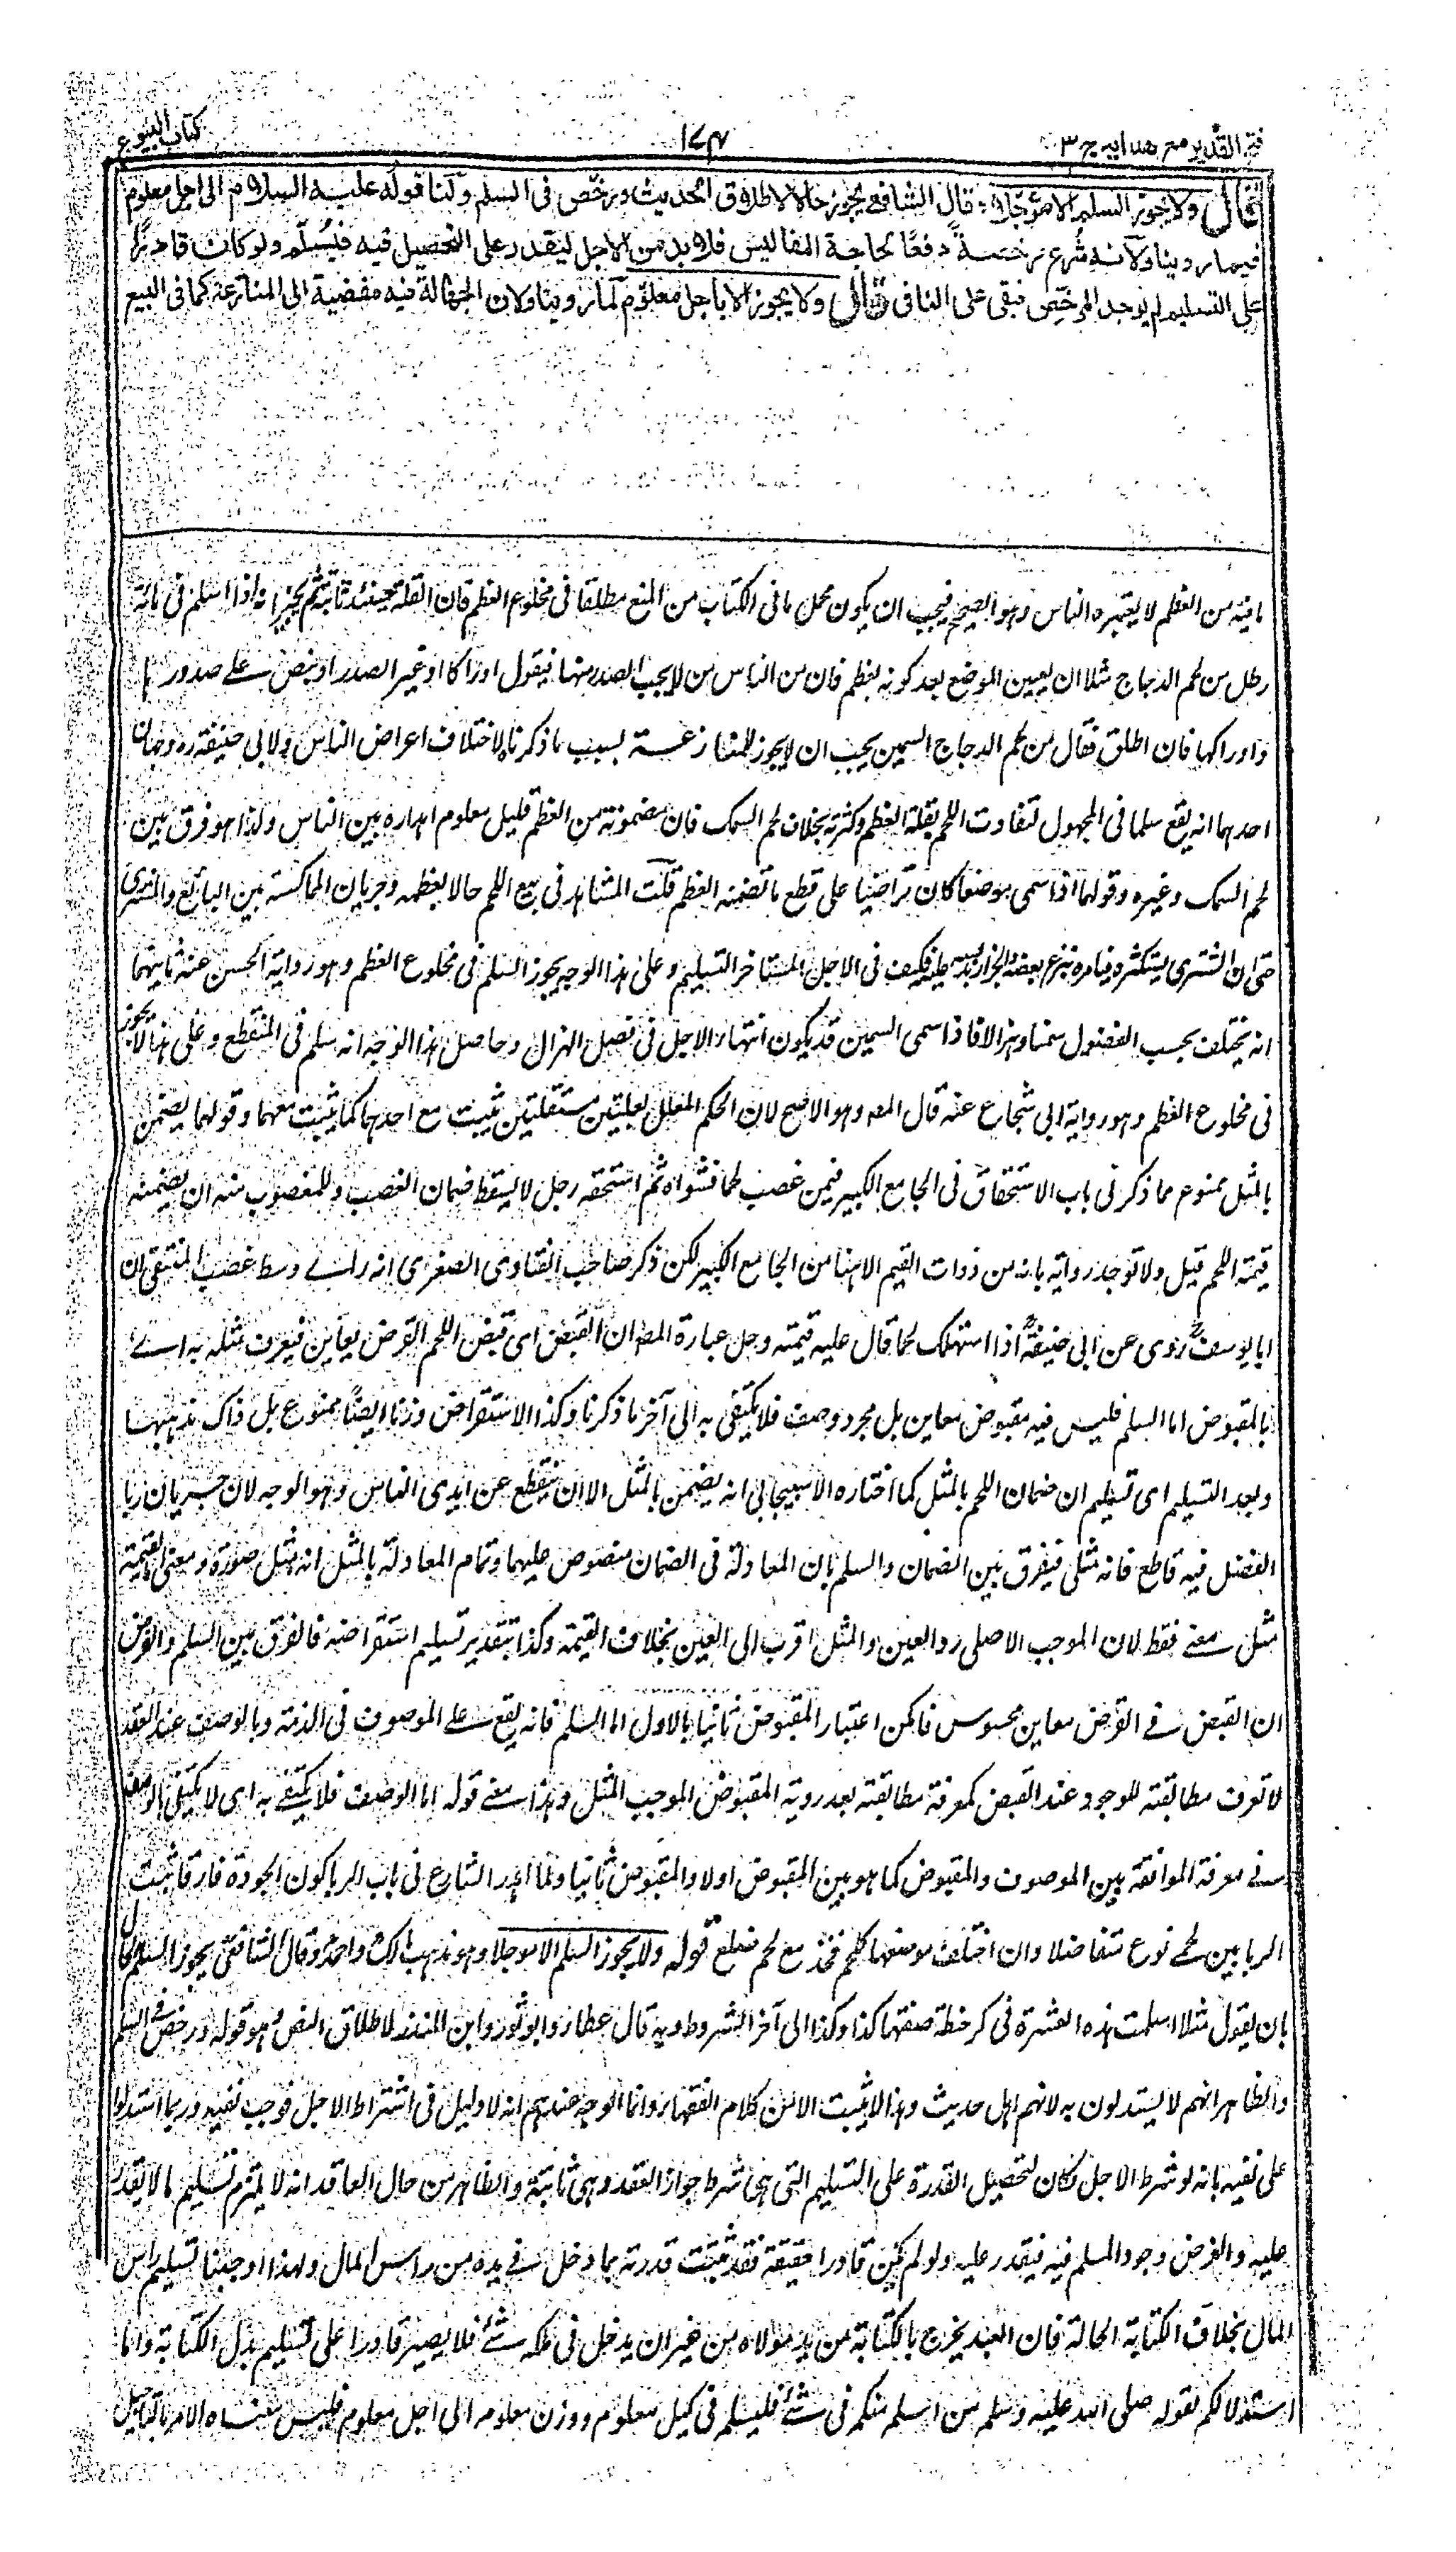 فتح القدير مع هدايه ج ٣
١٧٤
كتاب البيوع
قال ولا يجوز السلم الا مؤجلا وقال الشافعي يجوز حالا لاطلاق الحديث ورخص في السلم ولنا قوله عليه السلام الى اجل معلوم
فيما روينا ولانه شرع رخصة دفعا لحاجة المفاليس فلا بد من الاجل ليقدر على التحصيل فيه فيسلم ولو كان قادرا
على التسليم لم يوجد المرخص فبقى على النافى قال ولا يجوز الا باجل معلوم لما روينا ولان الجهالة فيه مفضية الى المنازعة كما فى البيع
ما فيه من العظم لا يعتبره الناس وهو الصحيح فيجب ان يكون محمل ما فى الكتاب من المنع مطلقا فى مخلوع العظم فان القلة حينئذ ثابتة ثم يجب انه اذا اسلم فى مائة
رطل من لحم الدجاج مثلا ان يعين الموضع بعد كونه بعظم فان من الناس من لا يحب الصدر منها فيقول اوراكا او غير الصدر او ينص على صدورها
واوراكها فان اطلق فقال من لحم الدجاج السمين يجب ان لا يجوز للمنازعة بسبب ما ذكرناه لاختلاف اغراض الناس ولابى حنيفة ره وجهان
احدهما انه يقع سلما فى المجهول لتفاوت اللحم بقلة العظم وكثرته بخلاف لحم السمك فان مضمونه من العظم قليل معلوم اهداره بين الناس ولذا هو فرق بين
لحم السمك وغيره وقولهما اذا سمى موضعا كان تراضيا على قطع ما تضمنه العظم قلت المشاهد فى بيع اللحم حالا بعظمه وجريان المماكسة بين البائع والمشترى
حتى ان المشترى يستكثره فيامره بنزع بعضه والجزار يدسه عليه فكيف فى الاجل المستاخر التسليم وعلى هذا الوجه يجوز السلم فى مخلوع العظم وهو رواية الحسن عنه ثانيهما
انه يختلف بحسب الفصول سمنا وهزالا فاذا سمى السمين قد يكون انتهاء الاجل فى فصل الهزال وحاصل هذا الوجه انه سلم فى المنقطع وعلى هذا لا يجوز
فى مخلوع العظم وهو رواية ابى شجاع عنه قال المصـ وهو الاصح لان الحكم المعلل بعلتين مستقلتين يثبت مع احدهما كما يثبت معهما وقولهما يضمن
بالمثل ممنوع مما ذكر فى باب الاستحقاق فى الجامع الكبير فيمن غصب لحما فشواه ثم استحقه رجل لا يسقط ضمان الغصب وللمغصوب منه ان يضمنه
قيمة اللحم قيل ولا توجد رواية بانه من ذوات القيم الا هنا من الجامع الكبير لكن ذكر صاحب الفتاوى الصغرى انه راى وسط غصب المنتقى ان
ابا يوسف روى عن ابى حنيفة اذا استهلك لحما قال عليه قيمته وحل عبارة المصـ ان القبض اى قبض اللحم القرض يعاين فيعرف مثله به اى
بالمقبوض اما السلم فليس فيه مقبوض معاين بل مجرد وصف فلا يكتفى به الى آخر ما ذكرنا وكذا الاستقراض وزنا ايضا ممنوع بل ذاك مذهبهما
وبعد التسليم اى تسليم ان ضمان اللحم بالمثل كما اختاره الاسبيجابى انه يضمن بالمثل الا ان ينقطع عن ايدى الناس وهو الوجه لان جريان ربا
الفضل فيه قاطع فانه مثلى فيفرق بين الضمان والسلم بان المعادلة فى الضمان منصوص عليهما وتمام المعادلة بالمثل انه مثل صورة ومعنى والقيمة
مثل معنى فقط لان الموجب الاصلى رد العين والمثل اقرب الى العين بخلاف القيمة وكذا بتقدير تسليم استقراضه فالفرق بين السلم والقرض
ان القبض فى القرض معاين محسوس فامكن اعتبار المقبوض ثانيا بالاول اما السلم فانه يقع على الموصوف فى الذمة وبالوصف عند العقد
لا تعرف مطابقته للموجود عند القبض كمعرفة مطابقته بعد روية المقبوض الموجب المثل وهذا معنى قوله اما الوصف فلا يكتفى به اى لا يكتفى بالوصف
فى معرفة الموافقة بين الموصوف والمقبوض كما هو بين المقبوض اولا والمقبوض ثانيا ولما اهدر الشارع فى باب الربا كون الجودة فارقا ثبت
الربا بين لحمى نوع متفاضلا وان اختلف موضعهما كلحم فخذ مع لحم ضلع قوله ولا يجوز السلم الا مؤجلا وهو مذهب مالك واحمد وقال الشافعى يجوز السلم الحال
بان يقول مثلا اسلمت هذه العشرة فى كر حنطة صفتها كذا وكذا الى آخر الشروط وبه قال عطاء وابو ثور وابن المنذر لاطلاق النص وهو قوله ورخص فى السلم
والظاهر انهم لا يستدلون به لانهم اهل حديث وهذا لا يثبت الا من كلام الفقهاء وانما الوجه عندهم انه لا دليل فى اشتراط الاجل فوجب نفيه وربما استدلوا
على نفيه بانه لو شرط الاجل لكان لتحصيل القدرة على التسليم التى هى شرط جواز العقد وهى ثابتة والظاهر من حال العاقد انه لا يلتزم تسليم ما لا يقدر
عليه والفرض وجود المسلم فيه فيقدر عليه ولو لم يكن قادرا حقيقة فقد ثبتت قدرته بما دخل فى يده من راس المال ولهذا اوجبنا تسليم راس
المال بخلاف الكتابة الحالة فان العبد يخرج بالكتابة من يد مولاه من غير ان يدخل فى ملكه شئ فلا يصير قادرا على تسليم بدل الكتابة واما
استدلالكم بقوله صلى الله عليه وسلم من اسلم منكم فى شئ فليسلم فى كيل معلوم ووزن معلوم الى اجل معلوم فليس معناه الامر بالتاجيل